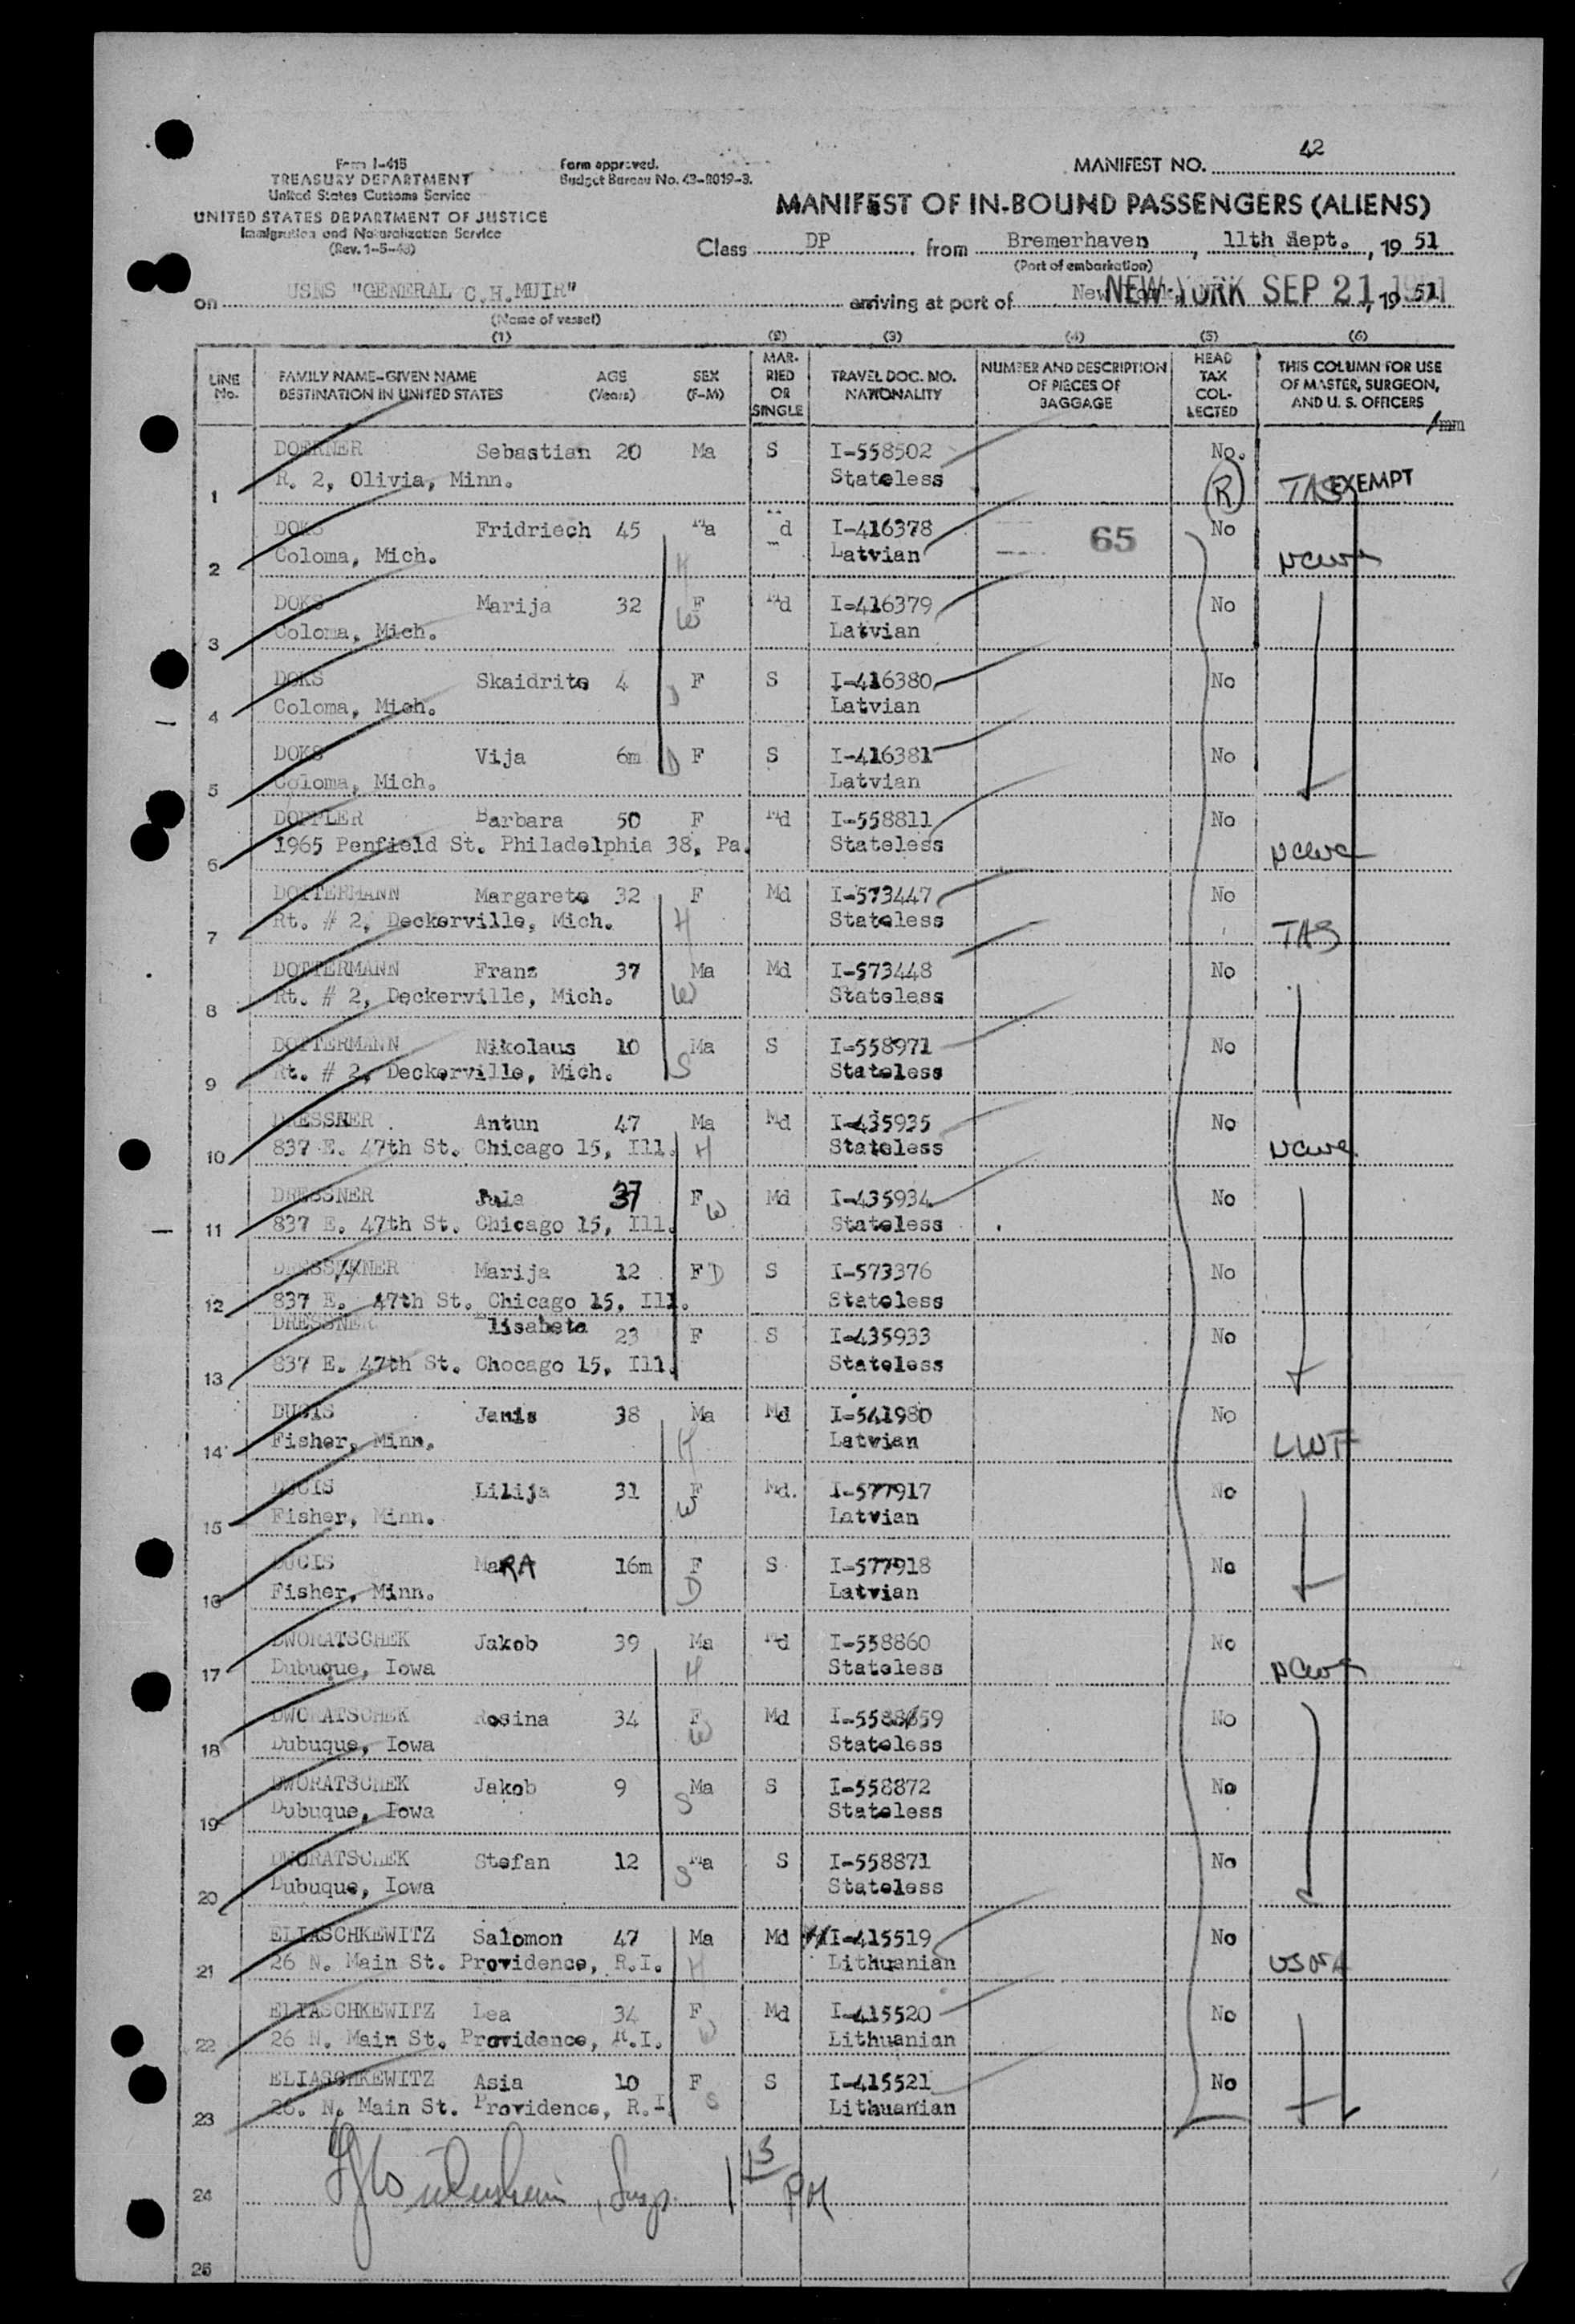 42
Form I-415
TREASURY DEPARTMENT
United States Customs Service
UNITED STATES DEPARTMENT OF JUSTICE
Immigration and Naturalization Service
(Rev. 1-5-48)
Form approved.
Budget Bureau No. 43-R019-3.
MANIFEST NO.
MANIFEST OF IN-BOUND PASSENGERS (ALIENS)
Class DP from Bremerhaven, 11th Sept., 19 51
(Port of embarkation)
on USNS "GENERAL C.H.MUIR" arriving at port of New York, 19 51
NEW YORK SEP 21 1951
(Name of vessel)
(1) (2) (3) (4) (5) (6)
LINE No. FAMILY NAME-GIVEN NAME DESTINATION IN UNITED STATES AGE (Years) SEX (F-M) MARRIED OR SINGLE TRAVEL DOC. NO. NATIONALITY NUMBER AND DESCRIPTION OF PIECES OF BAGGAGE HEAD TAX COLLECTED THIS COLUMN FOR USE OF MASTER, SURGEON, AND U. S. OFFICERS
/mm
DOERNER Sebastian 20 Ma S I-558502 No.
1 R. 2, Olivia, Minn. Stateless R TAS EXEMPT
DOKS Fridriech 45 Ma d I-416378 65 No
2 Coloma, Mich. H Latvian NCWC
DOKS Marija 32 F Md I-416379 No
3 Coloma, Mich. W Latvian
DOKS Skaidrite 4 F S I-416380 No
4 Coloma, Mich. D Latvian
DOKS Vija 6m F S I-416381 No
5 Coloma, Mich. D Latvian
DOPPLER Barbara 50 F Md I-558811 No
6 1965 Penfield St. Philadelphia 38, Pa. Stateless NCWC
DOTTERMANN Margarete 32 F Md I-573447 No
7 Rt. # 2, Deckerville, Mich. H Stateless TAS
DOTTERMANN Franz 37 Ma Md I-573448 No
8 Rt. # 2, Deckerville, Mich. W Stateless
DOTTERMANN Nikolaus 10 Ma S I-558971 No
9 Rt. # 2, Deckerville, Mich. S Stateless
DRESSNER Antun 47 Ma Md I-435935 No
10 837 E. 47th St. Chicago 15, Ill. H Stateless NCWC
DRESSNER Jula 37 F Md I-435934 No
11 837 E. 47th St. Chicago 15, Ill. W Stateless
Marija 12 F D S I-573376 No
12 837 E. 47th St. Chicago 15, Ill. Stateless
DRESSNER Elisabeta 23 F S I-435933 No
13 837 E. 47th St. Chocago 15, Ill. Stateless
DUCIS Janis 38 Ma Md I-541980 No
14 Fisher, Minn. H Latvian LWF
DUCIS Lilija 31 F Md. I-577917 No
15 Fisher, Minn. W Latvian
DUCIS MaRA 16m F S I-577918 No
16 Fisher, Minn. D Latvian
DWORATSCHEK Jakob 39 Ma Md I-558860 No
17 Dubuque, Iowa H Stateless NCWC
DWORATSCHEK Rosina 34 F Md No
18 Dubuque, Iowa W Stateless
DWORATSCHEK Jakob 9 Ma S I-558872 No
19 Dubuque, Iowa S Stateless
DWORATSCHEK Stefan 12 Ma S I-558871 No
20 Dubuque, Iowa S Stateless
ELIASCHKEWITZ Salomon 47 Ma Md I-415519 No
21 26 N. Main St. Providence, R.I. H Lithuanian USNA
ELIASCHKEWITZ Lea 34 F Md I-415520 No
22 26 N. Main St. Providence, R.I. W Lithuanian
ELIASCHKEWITZ Asia 10 F S I-415521 No
23 26. N. Main St. Providence, R.I. S Lithuanian
24 PM
25